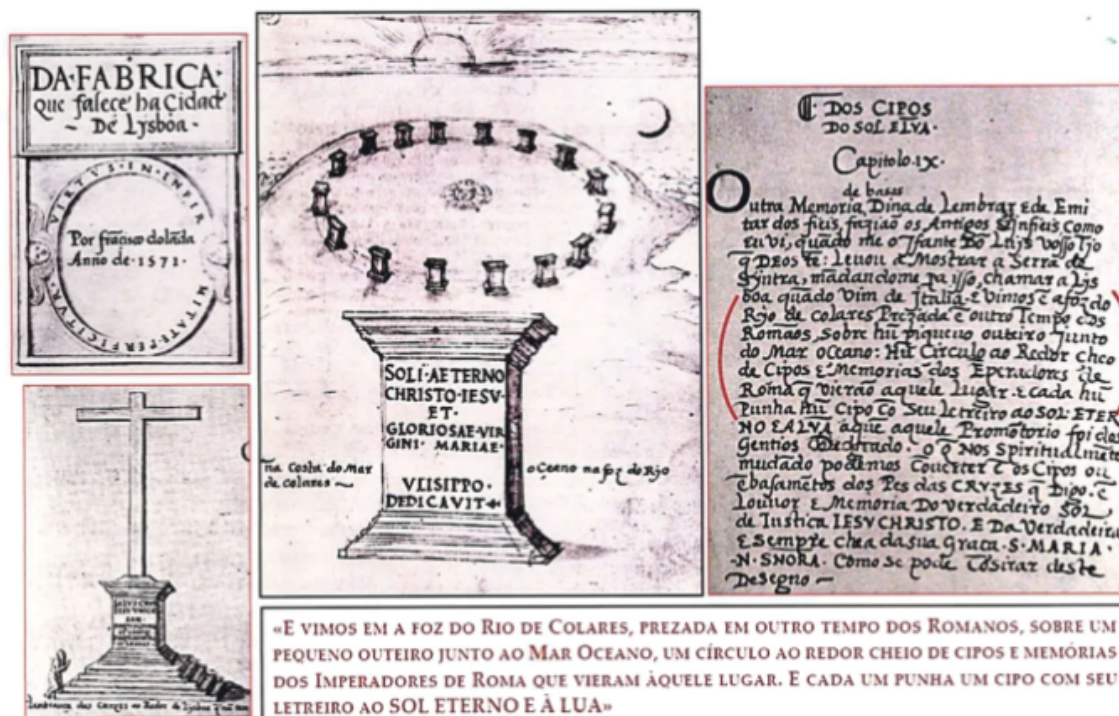 DA·FABRICA·
que falece ha Cidade
~ De Lysboa ·
VIRTVS·IN·INFIRMITATE·PERFICITVR·
Por francisco dolāda
Anno de·1571·
SOLI·AETERNO
CHRISTO·IESV
ET·
GLORIOSAE·VIR
GINI·MARIAE·
VLISIPPO·
DEDICAVIT
na Costa do Mar
de colares ~
oceano na foz do Rjo
Lembrança das Cruzes ao Redor de Lysboa
DOS CIPOS
DO SOL E LVA·
Capitolo·IX·
de basas
Outra Memoria Dina de Lembrar E de Emi
tar dos fieis, faziāo os Antigos Infieis como
eu vi, quādo me o Jfante Dō Luys vosso Tjo
q̄ DEOS tē: Levou a Mostrar a Serra de
Syntra, mādandome pa isso, chamar a Lys
boa quādo Vim de Italia. E Vimos ē a foz do
Rjo de colares Prezada ē outro Tempo dos
Romāos, Sobre hū piqueno outeiro Junto
do Mar oceano: Hū Circulo ao Redor cheo
de Cipos E Memorias dos Eperadores de
Roma q̄ vierāo aquele Lugar. E cada hū
Punha hū Cipo cō Seu Letreiro ao SOL·ETER
NO E A LVA aque aquele Promōtorio foi dos
Gentios Dedicado. O q̄ Nos Spiritualmēte
mudado podemos Cōverter ē os Cipos ou
ēbasamētos dos Pes das CRVZES q̄ Digo. ē
Louvor E Memoria Do Verdadeiro SOL
de Justica IESV CHRISTO. E Da Verdadeira
E Sempre chea da sua Graca·S·MARIA·
·N·SNORA· Como se pode Cōsirar deste
Desegno ~
«E VIMOS EM A FOZ DO RIO DE COLARES, PREZADA EM OUTRO TEMPO DOS ROMANOS, SOBRE UM
PEQUENO OUTEIRO JUNTO AO MAR OCEANO, UM CÍRCULO AO REDOR CHEIO DE CIPOS E MEMÓRIAS
DOS IMPERADORES DE ROMA QUE VIERAM ÀQUELE LUGAR. E CADA UM PUNHA UM CIPO COM SEU
LETREIRO AO SOL ETERNO E À LUA»